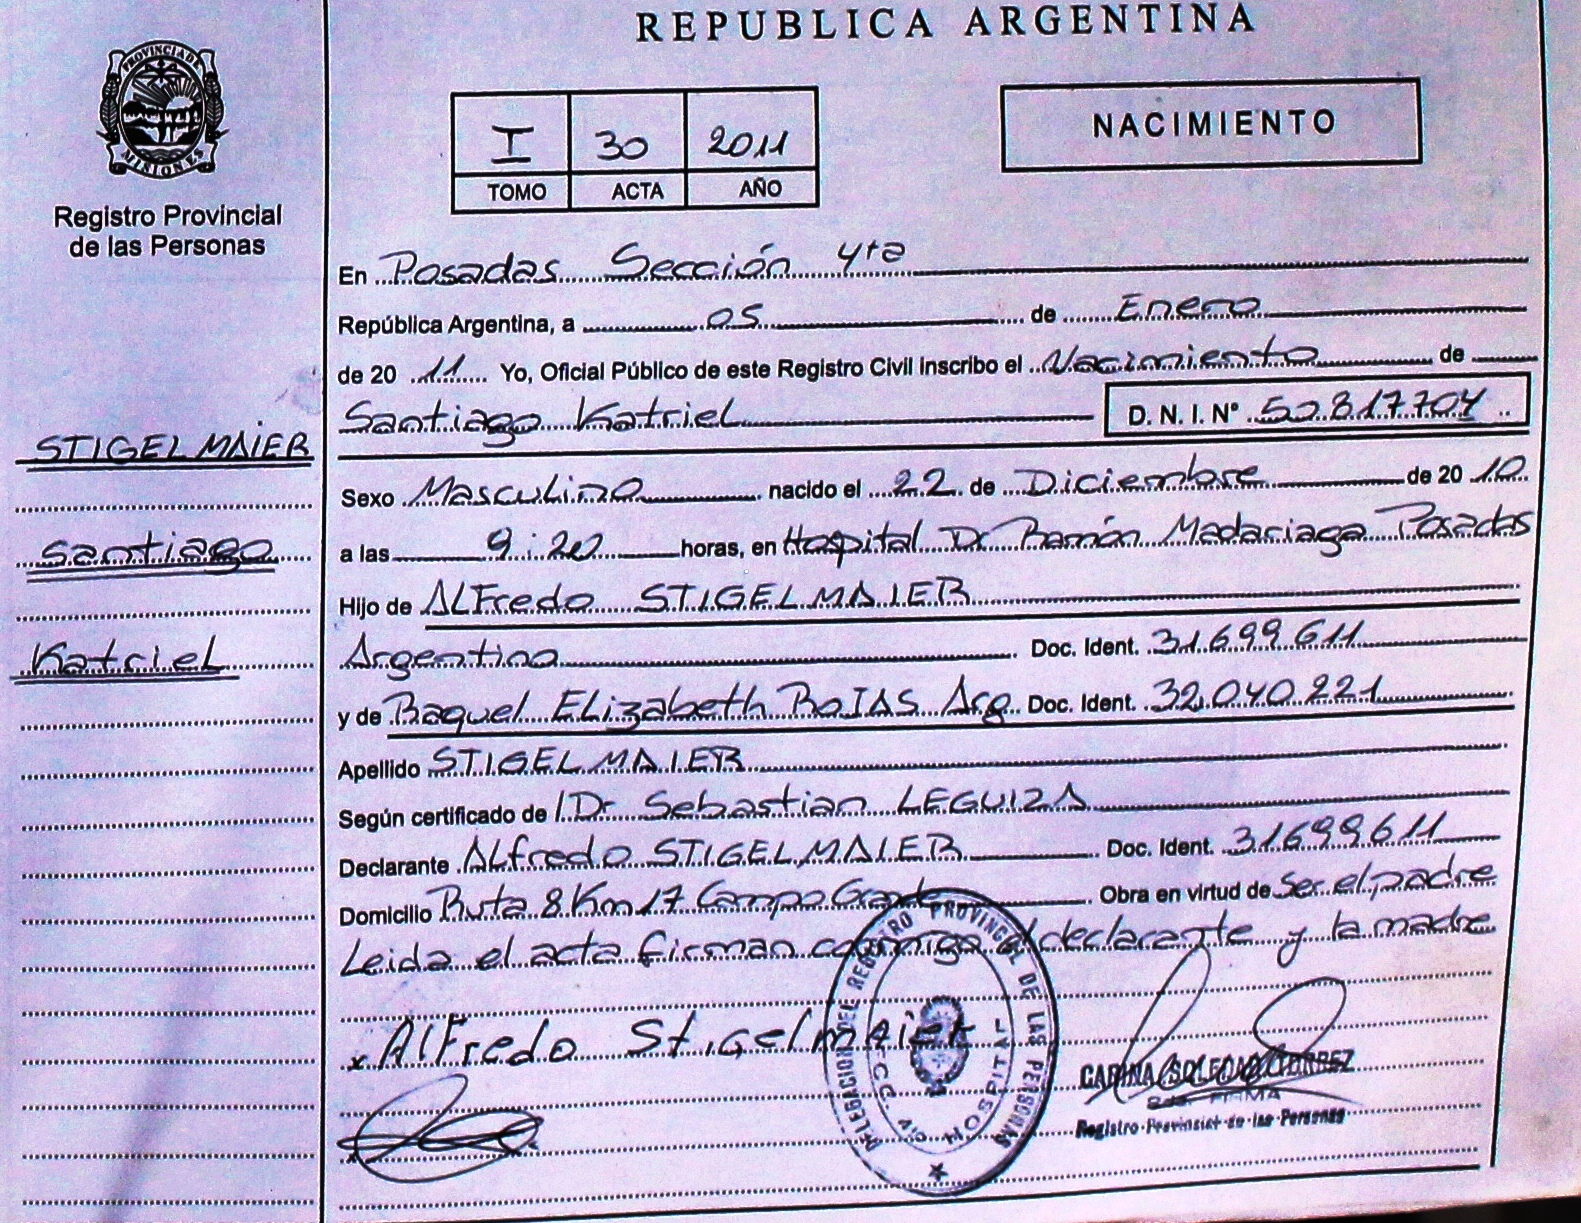 REPUBLICA ARGENTINA
PROVINCIA DE MISIONES
Registro Provincial
de las Personas
I 30 2011
TOMO ACTA AÑO
NACIMIENTO
En Posadas Sección 4ta
República Argentina, a 05 de Enero
de 2011 Yo, Oficial Público de este Registro Civil Inscribo el Nacimiento de
Santiago Katriel D. N. I. N° 50.817.704
STIGELMAIER
Santiago
Katriel
Sexo Masculino nacido el 22 de Diciembre de 2010
a las 9:20 horas, en Hospital Dr Ramón Madariaga Posadas
Hijo de ALFredo STIGELMAIER
Argentino Doc. Ident. 31.699.611
y de Raquel ELizabeth ROJAS Arg. Doc. Ident. 32.040.221
Apellido STIGELMAIER
Según certificado de Dr Sebastian LEGUIZA
Declarante ALfredo STIGELMAIER Doc. Ident. 31.699.611
Domicilio Ruta 8 Km 17 Campo Grande Obra en virtud de ser el padre
Leida el acta firman conmigo el declarante y la madre
x AlFredo Stigelmaier
DELEGACION DEL REGISTRO PROVINCIAL DE LAS PERSONAS
HOSPITAL
CARINA SOLEDAD
FIRMA
Registro Provincial de las Personas